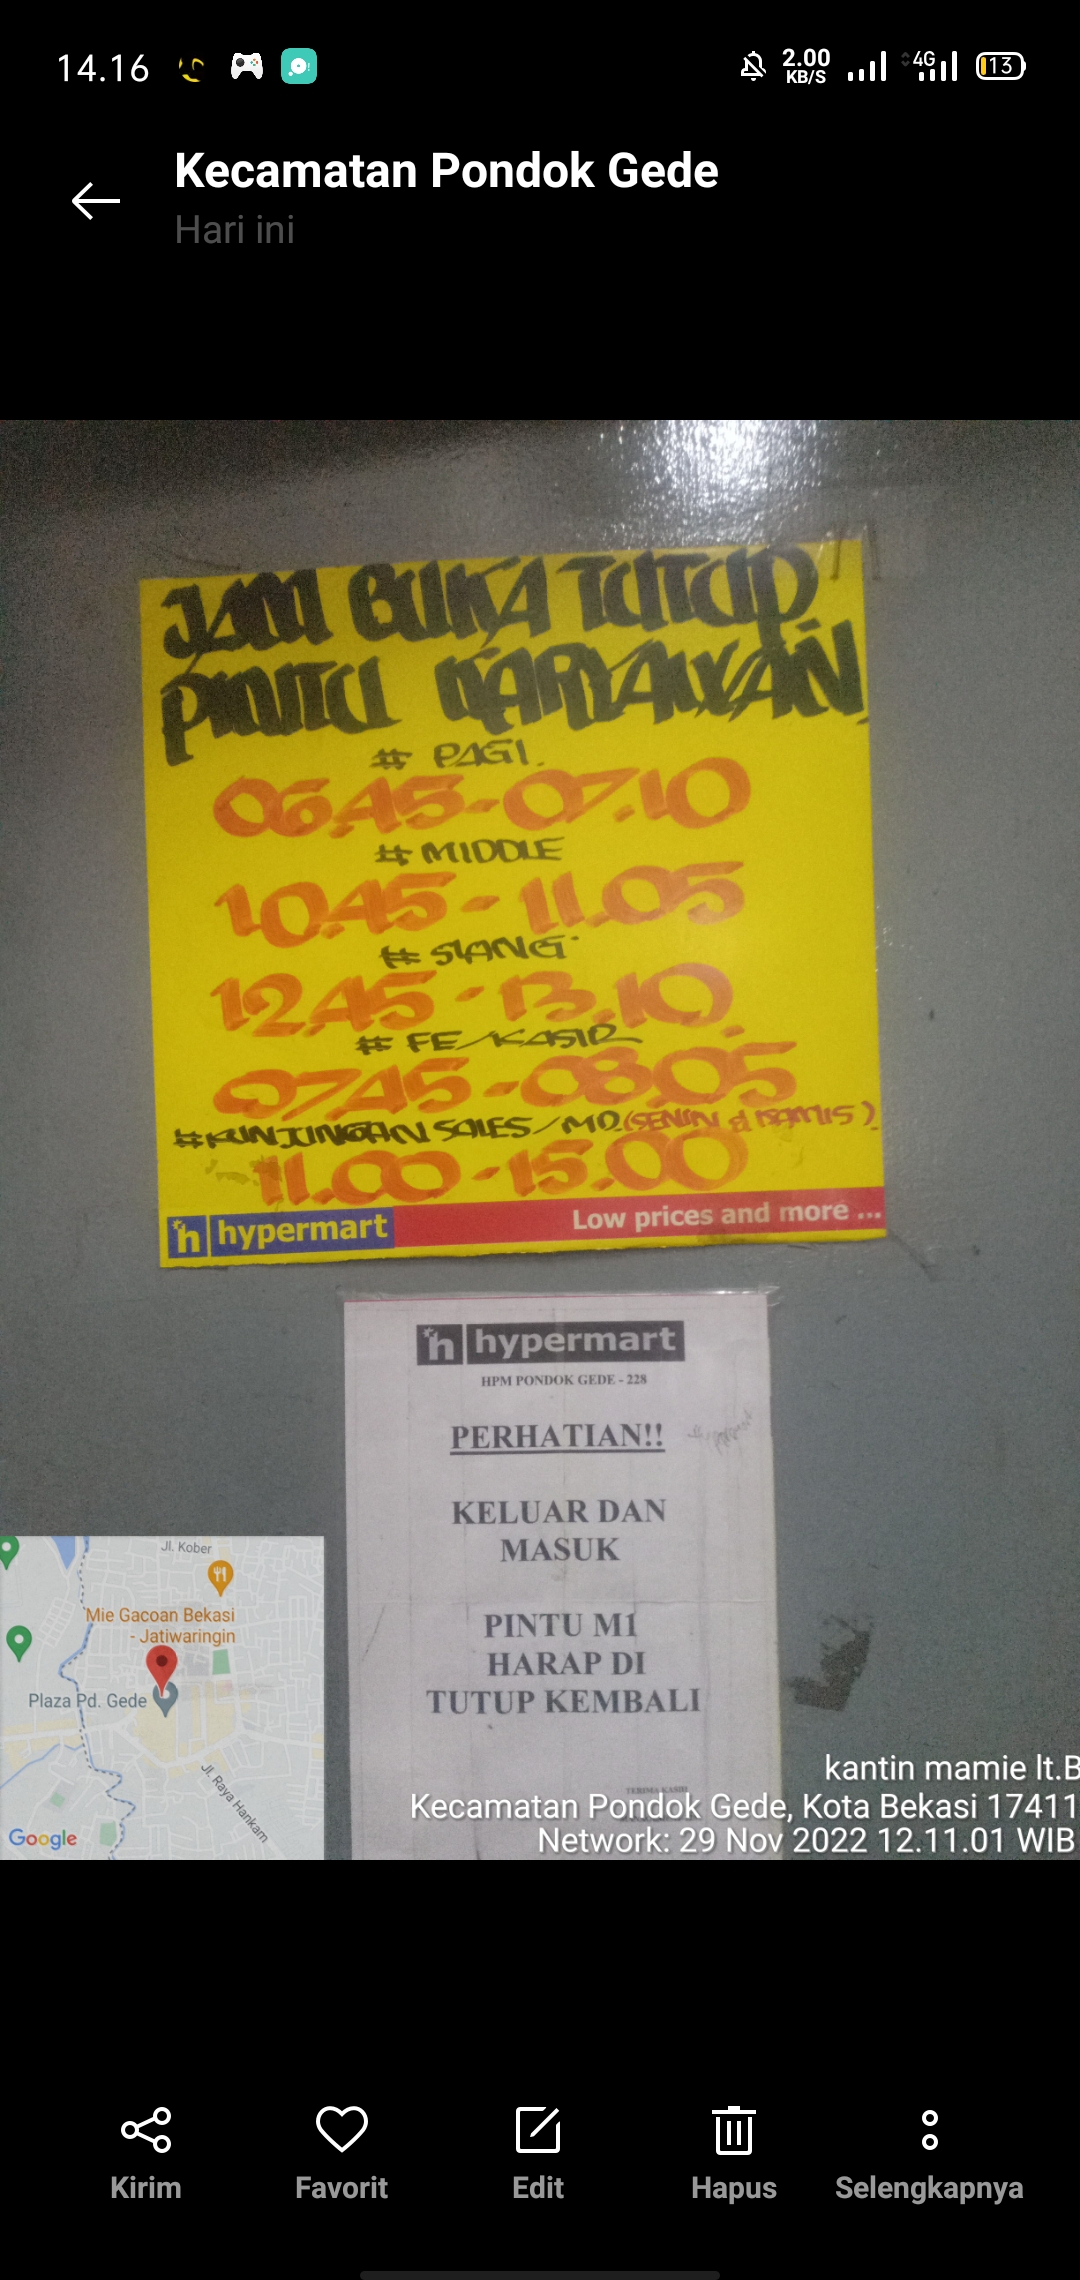 14.16
2.00
KB/S
4G
13
Kecamatan Pondok Gede
Hari ini
JAM BUKA TUTUP
PINTU KARYAWAN
# PAGI.
06.45-07.10
# MIDDLE
10.45 - 11.05
# SIANG
12.45 - 13.10
# FE/KASIR
07.45 - 08.05
#KUNJUNGAN SALES/MD.(SENIN & KAMIS)
11.00 - 15.00
h hypermart
Low prices and more ...
h hypermart
HPM PONDOK GEDE - 228
PERHATIAN!!
KELUAR DAN
MASUK
PINTU M1
HARAP DI
TUTUP KEMBALI
TERIMA KASIH
Jl. Kober
Mie Gacoan Bekasi
- Jatiwaringin
Plaza Pd. Gede
Jl. Raya Hankam
Google
kantin mamie lt.B
Kecamatan Pondok Gede, Kota Bekasi 17411
Network: 29 Nov 2022 12.11.01 WIB
Kirim
Favorit
Edit
Hapus
Selengkapnya